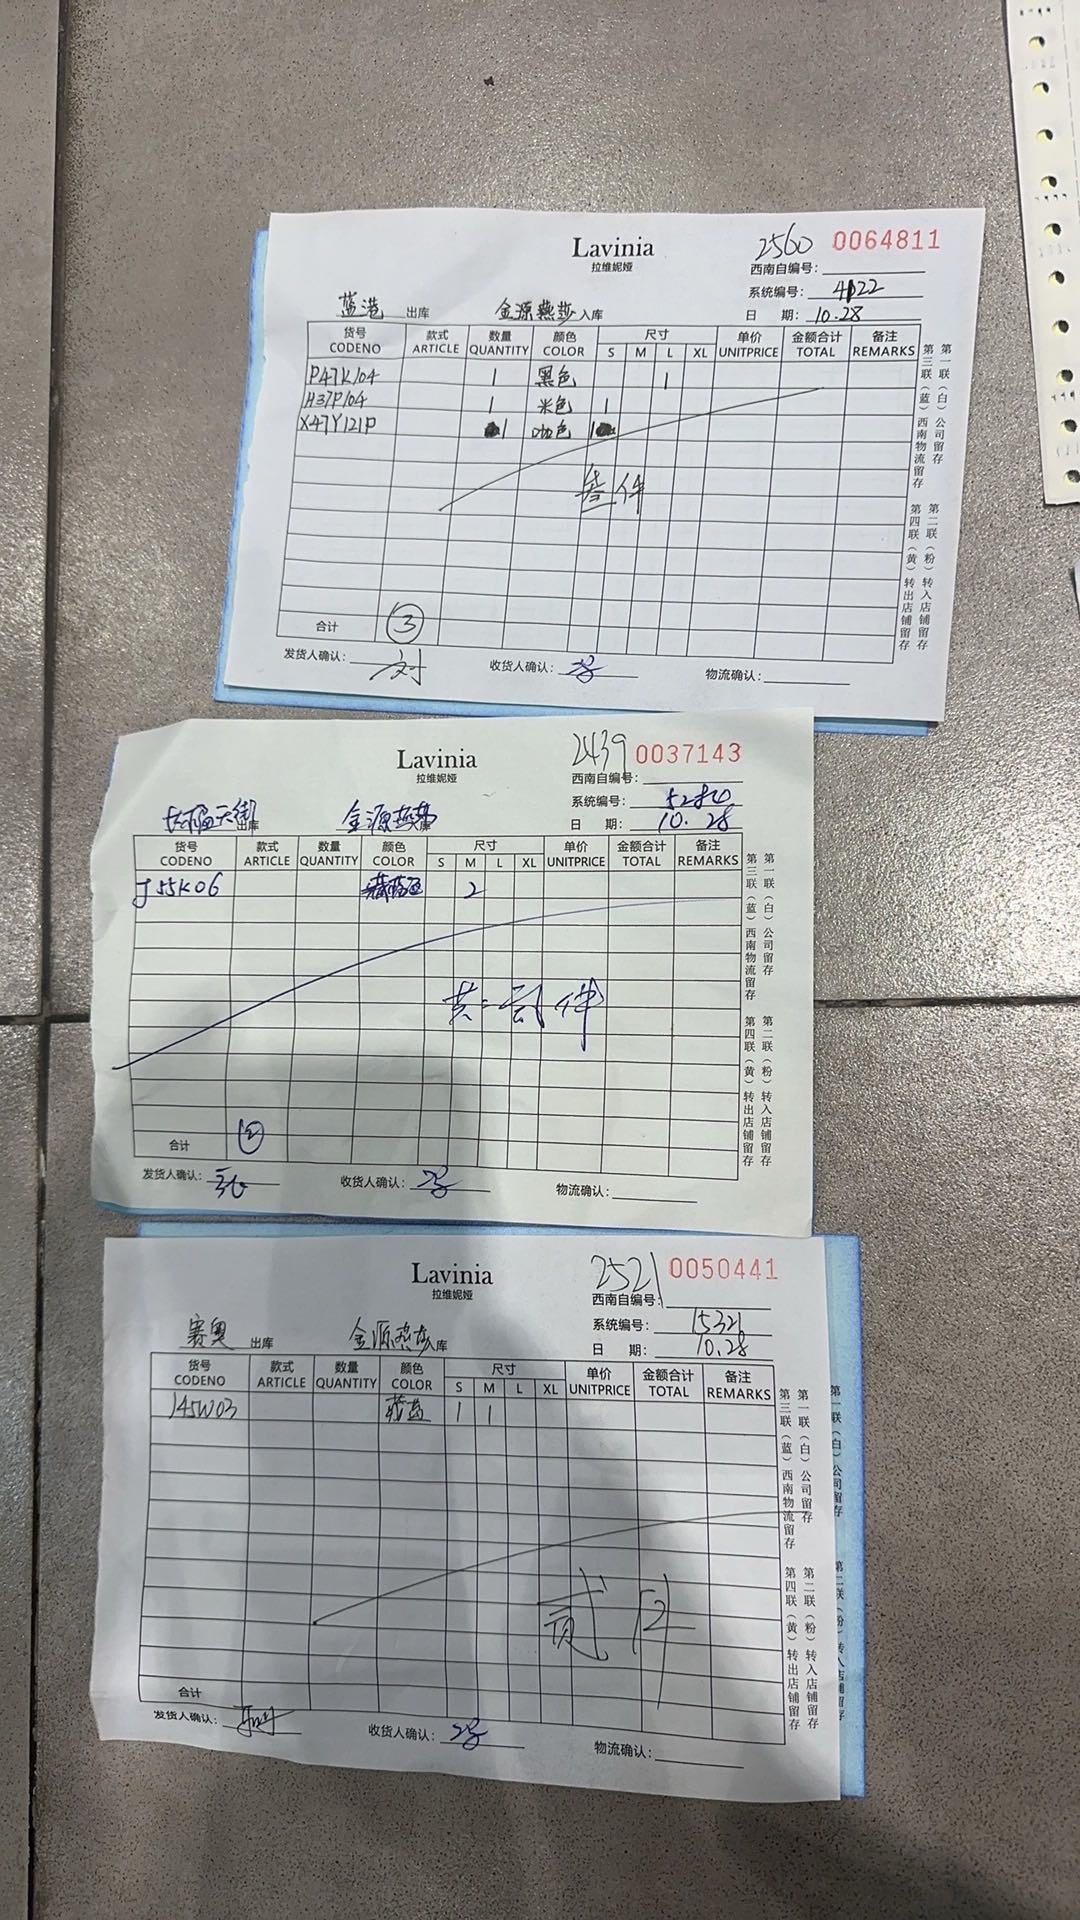 Lavinia
拉维妮娅
2560 0064811
西南自编号：
系统编号： 4122
蓝港 出库 金源燕莎 入库 日 期：10.28
货号 款式 数量 颜色 尺寸 单价 金额合计 备注
CODENO ARTICLE QUANTITY COLOR S M L XL UNITPRICE TOTAL REMARKS
P47K104 1 黑色 1
H37P104 1 米色 1
X47Y121P 1 咖色 1
叁件
合计 3
发货人确认： 收货人确认： 物流确认：
第一联（白）公司留存 第二联（粉）转入店铺留存
第三联（蓝）西南物流留存 第四联（黄）转出店铺留存
Lavinia
拉维妮娅
2439 0037143
西南自编号：
系统编号： 5280
长楹天街 出库 金源燕莎 入库 日 期：10.28
货号 款式 数量 颜色 尺寸 单价 金额合计 备注
CODENO ARTICLE QUANTITY COLOR S M L XL UNITPRICE TOTAL REMARKS
J55K06 藏蓝 2
共：贰件
合计 2
发货人确认： 收货人确认： 物流确认：
第一联（白）公司留存 第二联（粉）转入店铺留存
第三联（蓝）西南物流留存 第四联（黄）转出店铺留存
Lavinia
拉维妮娅
2521 0050441
西南自编号：
系统编号： 15321
赛奥 出库 金源燕莎 入库 日 期：10.28
货号 款式 数量 颜色 尺寸 单价 金额合计 备注
CODENO ARTICLE QUANTITY COLOR S M L XL UNITPRICE TOTAL REMARKS
J45W03 藏蓝 1 1
贰件
合计
发货人确认： 收货人确认： 物流确认：
第一联（白）公司留存 第二联（粉）转入店铺留存
第三联（蓝）西南物流留存 第四联（黄）转出店铺留存